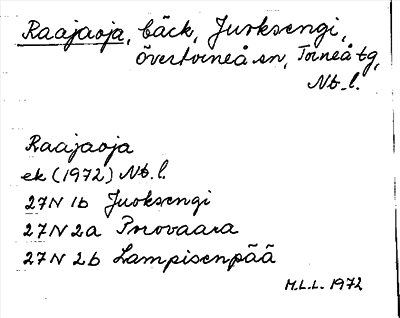 Raajaoja, bäck, Juoksengi,
Övertorneå sn, Torneå tg,
Nb. l.
Raajaoja
ek (1972) Nb. l.
27N 1b Juoksengi
27N 2a Porovaara
27N 2b Lampisenpää
M.L.L. 1972